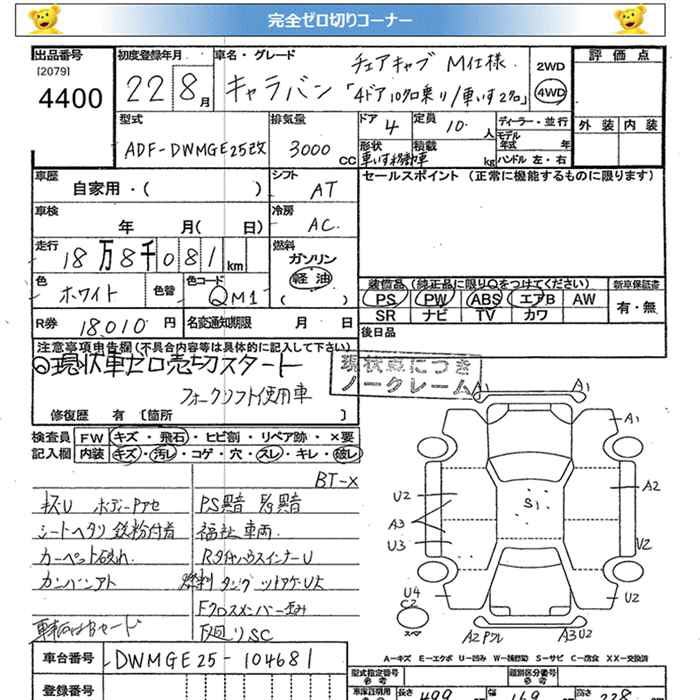 完全ゼロ切りコーナー
出品番号
[2079]
4400
初度登録年月
22 8月
車名・グレード
キャラバン
チェアキャブ M仕様
「4ドア 10人乗り/車いす2名」
2WD
4WD
評価点
外装 内装
型式
ADF-DWMGE25改
排気量
3000 CC
ドア
4
定員
10 人
形状
車いす移動車
積載
kg
ディーラー・並行
モデル年式 年
ハンドル 左・右
車歴
自家用・( )
シフト
AT
セールスポイント (正常に機能するものに限ります)
車検
年 月( 日)
冷房
AC
走行
18万8千081 km
燃料
ガソリン
軽油
色
ホワイト
色替
色コード
QM1
装備品(純正品に限り○をつけてください)
新車保証書
PS PW ABS エアB AW
SR ナビ TV カワ
有・無
R券 18010 円
名変通知期限 月 日
後日品
注意事項申告欄(不具合内容等は具体的に記入して下さい)
◎現状車ゼロ売切スタート
フォークリフト使用車
現状車につき
ノークレーム
修復歴 有 [箇所 ]
検査員記入欄
FW キズ・飛石・ヒビ割・リペア跡・×要
内装 キズ・汚レ・コゲ・穴・スレ・キレ・破レ
BT-X
キズU ボディーアセ
シートヘタリ 鉄粉付着
カーペット破れ
カンバンアト
福祉車両
RタイヤハウスインナーU
下廻りSC
A1 A1
A1
A2
U2
A3
U3
S1
V2
U4
C2
U2
スペア
A3U2
A-キズ E-エクボ U-凹み W-補修跡 S-サビ C-腐食 XX-交換済
車台番号
DWMGE25-104681
登録番号
型式指定番号
参考
類別区分番号
参考
長さ 499
幅 169
高さ 228